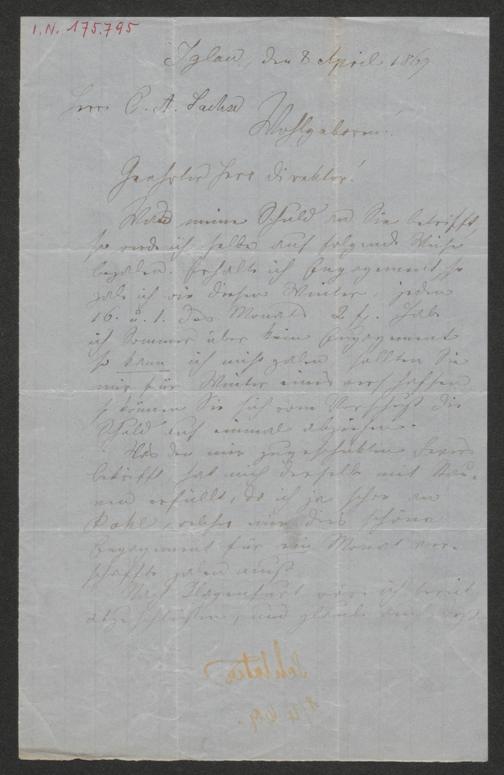 I.N. 175.795
Iglau, den 8 April 1869
Herr C. A. Sachse
Wohlgeboren.
Geehrter Herr Direktor!
Was meine Schuld an Sie betrifft
so werde ich selbe auf folgende Weise
bezalen. Erhalte ich Engagement, so
zale ich wie diesen Winter, jeden
16. u. 1. des Monats 2 f. Hab
ich Sommer über kein Engagement
so kann ich nicht zalen, sollten Sie
mir für Winter eines verschaffen
so können Sie sich vom Vorschuß die
Schuld auf einmal abziehen.
Was den mir zugeschickten Revers
betrifft hat mich derselbe mit Stau-
nen erfüllt, da ich ja schon an
welcher mir dies schöne
Engagement für ein Monat ver-
schaffte zalen muß.
Nach Klagenfurt wäre ich bereit
abzuschließen, und glaube